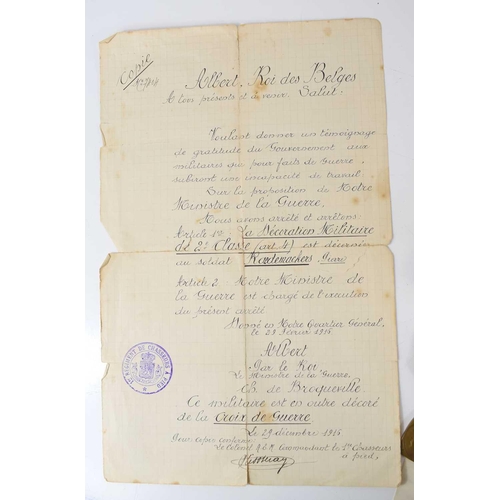 Copie
Albert, Roi des Belges
A tous présents et à venir. Salut.
Voulant donner un témoignage
de gratitude du Gouvernement aux
militaires qui pour faits de Guerre,
subiront une incapacité de travail.
Sur la proposition de Notre
Ministre de la Guerre.
Nous avons arrêté et arrêtons:
Article 1er La Décoration Militaire
de 2e Classe (art 4) est décernée
au soldat
Article 2 Notre Ministre de
la Guerre est chargé de l'exécution
du présent arrêté
Donné en Notre Quartier Général,
le 23 Février 1916
Albert
Par le Roi,
Le Ministre de la Guerre,
Ch. de Broqueville.
Ce militaire est en outre décoré
de la Croix de Guerre.
Le 29 décembre 1916
Pour copie conforme
Le Colonel A.E.M. Commandant le 1er Chasseurs
à pied.
REGIMENT DE CHASSEURS A PIED